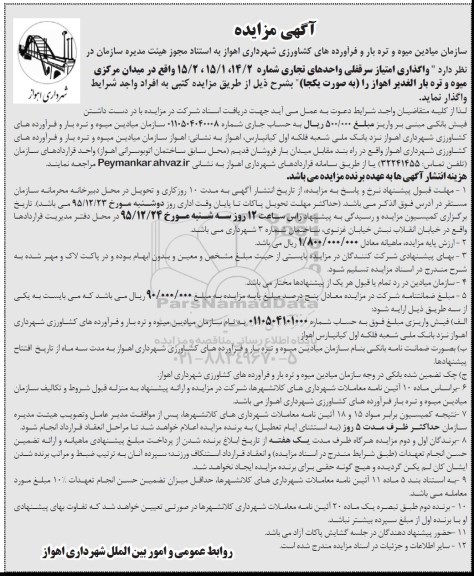 آگهی مزایده
سازمان میادین میوه و تره بار و فرآورده های کشاورزی شهرداری اهواز به استناد مجوز هیئت مدیره سازمان در
نظر دارد " واگذاری امتیاز سرقفلی واحدهای تجاری شماره ۱۴/۲ ، ۱۵/۱ ، ۱۵/۲ واقع در میدان مرکزی
میوه و تره بار الغدیر اهواز را (به صورت یکجا)" بشرح ذیل از طریق مزایده کتبی به افراد واجد شرایط
واگذار نماید.
شهرداری اهواز
لذا از کلیه متقاضیان واجد شرایط دعوت به عمل می آید جهت دریافت اسناد شرکت در مزایده با در دست داشتن
فیش بانکی مبنی بر واریز مبلغ ۵۰۰/۰۰۰ ریال به حساب جاری شماره ۰۱۱۰۵۰۴۰۴۰۰۸ سازمان میادین میوه و تره بار و فرآورده های
کشاورزی شهرداری اهواز نزد بانک ملی شعبه فلکه اول کیانپارس، اهواز به نشانی: اهواز سازمان میادین میوه و تره بار و فرآورده های
کشاورزی شهرداری اهواز واقع در راه بند مقابل میدان بار فروشان قدیم (محل سابق ساختمان اتوبوسرانی اهواز) واحد قراردادهای سازمان
(تلفن تماس: ۳۲۲۴۱۴۵۵) یا از طریق سامانه قراردادهای شهرداری اهواز به نشانی Peymankar.ahvaz.ir مراجعه نمایند.
هزینه انتشار آگهی ها به عهده برنده مزایده می باشد.
۱ - مهلت قبول پیشنهاد نرخ و پاسخ به مزایده، از تاریخ انتشار آگهی به مدت ۱۰ روزکاری و تحویل در محل دبیرخانه محرمانه سازمان
مستقر در آدرس فوق الذکر می باشد. (حداکثر مهلت تحویل پاکات تا پایان وقت اداری روز دوشنبه مورخ ۹۵/۱۲/۲۳ می باشد). تاریخ
برگزاری کمیسیون مزایده و رسیدگی به پیشنهادها راس ساعت ۱۲ روز سه شنبه مورخ ۹۵/۱۲/۲۴ در محل دفتر مدیریت قراردادها
واقع در خیابان انقلاب نبش خیابان غزنوی، ساختمان شماره ۳ شهرداری می باشد.
۲ - ارزش پایه مزایده، ماهیانه معادل ۱/۸۰۰/۰۰۰/۰۰۰ ریال می باشد.
۳ - بهای پیشنهادی شرکت کنندگان در مزایده بایستی از حیث مبلغ مشخص و معین و بدون ابهام بوده و در پاکت لاک و مهر شده به
شرح مندرج در اسناد مزایده تسلیم شود.
۴ - سازمان میادین در رد تمام یا قبول هر یک از پیشنهادها مختار می باشد.
۵ - مبلغ ضمانتنامه شرکت در مزایده معادل پنج درصد مبلغ پایه مزایده به مبلغ ۹۰/۰۰۰/۰۰۰ ریال می باشد که می بایست به یکی
از سه طریق ذیل ارایه شود:
الف) فیش واریزی مبلغ فوق به حساب شماره ۰۱۱۰۵۰۴۱۰۱۰۰۰ بنام سازمان میادین میوه و تره بار و فرآورده های کشاورزی شهرداری
اهواز نزد بانک ملی شعبه فلکه اول کیانپارس اهواز
ب) بصورت ضمانت نامه بانکی بنام سازمان میادین میوه و تره بار و فرآورده های کشاورزی شهرداری اهواز به مدت سه ماه از تاریخ افتتاح
پیشنهادها.
ج) چک تضمین شده بانکی در وجه سازمان میادین میوه و تره بار و فرآورده های کشاورزی شهرداری اهواز.
۶ - براساس ماده ۱۰ آئین نامه معاملات شهرداری های کلانشهرها، شرکت در مزایده و ارائه پیشنهاد به منزله قبول شروط و تکالیف سازمان
میادین میوه و تره بار و فرآورده های کشاورزی شهرداری اهواز می باشد.
۷ - نتیجه کمیسیون برابر مواد ۱۵ و ۱۸ آئین نامه معاملات شهرداری های کلانشهرها، پس از موافقت مدیر عامل و تصویب هیئت مدیره
سازمان حداکثر ظرف مدت ۵ روز (به استثنای ایام تعطیل) به برنده مزایده اعلام خواهد شد تا مراحل انعقاد قرارداد انجام شود.
۸ - برندگان اول و دوم مزایده هرگاه ظرف مدت یک هفته از تاریخ ابلاغ برنده شدن از پرداخت مبلغ پیشنهادی ماهیانه و ارائه تضمین
حسن انجام تعهدات (طبق شرایط مندرج در اسناد مزایده) و انعقاد قرارداد استنکاف ورزند؛ سپرده آنان به ترتیب ضبط و مراتب برنده شدن
ایشان کان لم یکن گردیده و هیچ گونه حقی برای برنده مزایده ایجاد نخواهد شد.
۹ - به استناد بند ۵ ماده ۱۱ آئین نامه معاملات شهرداری های کلانشهرها، حداقل میزان تضمین حسن انجام تعهدات ۱۰٪ مبلغ مورد
معامله می باشد.
۱۰ - برنده دوم طبق تبصره یک ماده ۲۰ آئین نامه معاملات شهرداری کلانشهرها در صورتی تعیین خواهد شد که تفاوت بهای پیشنهادی
او با برنده اول از مبلغ سپرده بیشتر نباشد.
۱۱ - حضور پیشنهاد دهندگان در جلسه گشایش پاکات آزاد می باشد.
۱۲ - سایر اطلاعات و جزئیات در اسناد مزایده مندرج شده است.
روابط عمومی و امور بین الملل شهرداری اهواز
ParsNamadData
۰۲۱-۸۸۳۴۹۶۷۰-۵